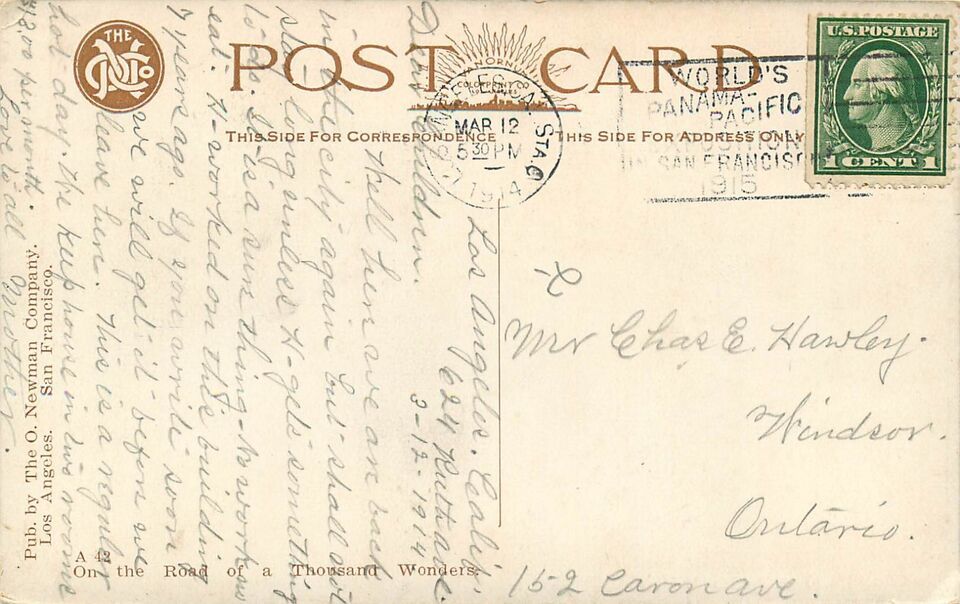 THE
O N Co
POST CARD
THIS SIDE FOR CORRESPONDENCE
THIS SIDE FOR ADDRESS ONLY
LOS ANGELES, CAL. STA. C
MAR 12
5 30 PM
1914
WORLD'S
PANAMA-
PACIFIC
EXPOSITION
IN SAN FRANCISCO
1915
U.S. POSTAGE
1 CENT 1
Los Angeles. Calif.
624 Ruth ave.
3-12-1914
Dear Children.
Well here we are back
in the city again but shall not
stay long unless H- gets something
to do. It is a sure thing - no work no
eat. H- worked on this building
7 years ago. If you write soon
we will get it before we
leave here. This is a regular
hot day. We keep house in two rooms
$12.00 per month.
Love to all Mother.
Mr Chas E. Hawley.
Windsor.
Ontario.
152 Caron ave.
Pub. by The O. Newman Company.
Los Angeles. San Francisco.
A 42
On the Road of a Thousand Wonders.